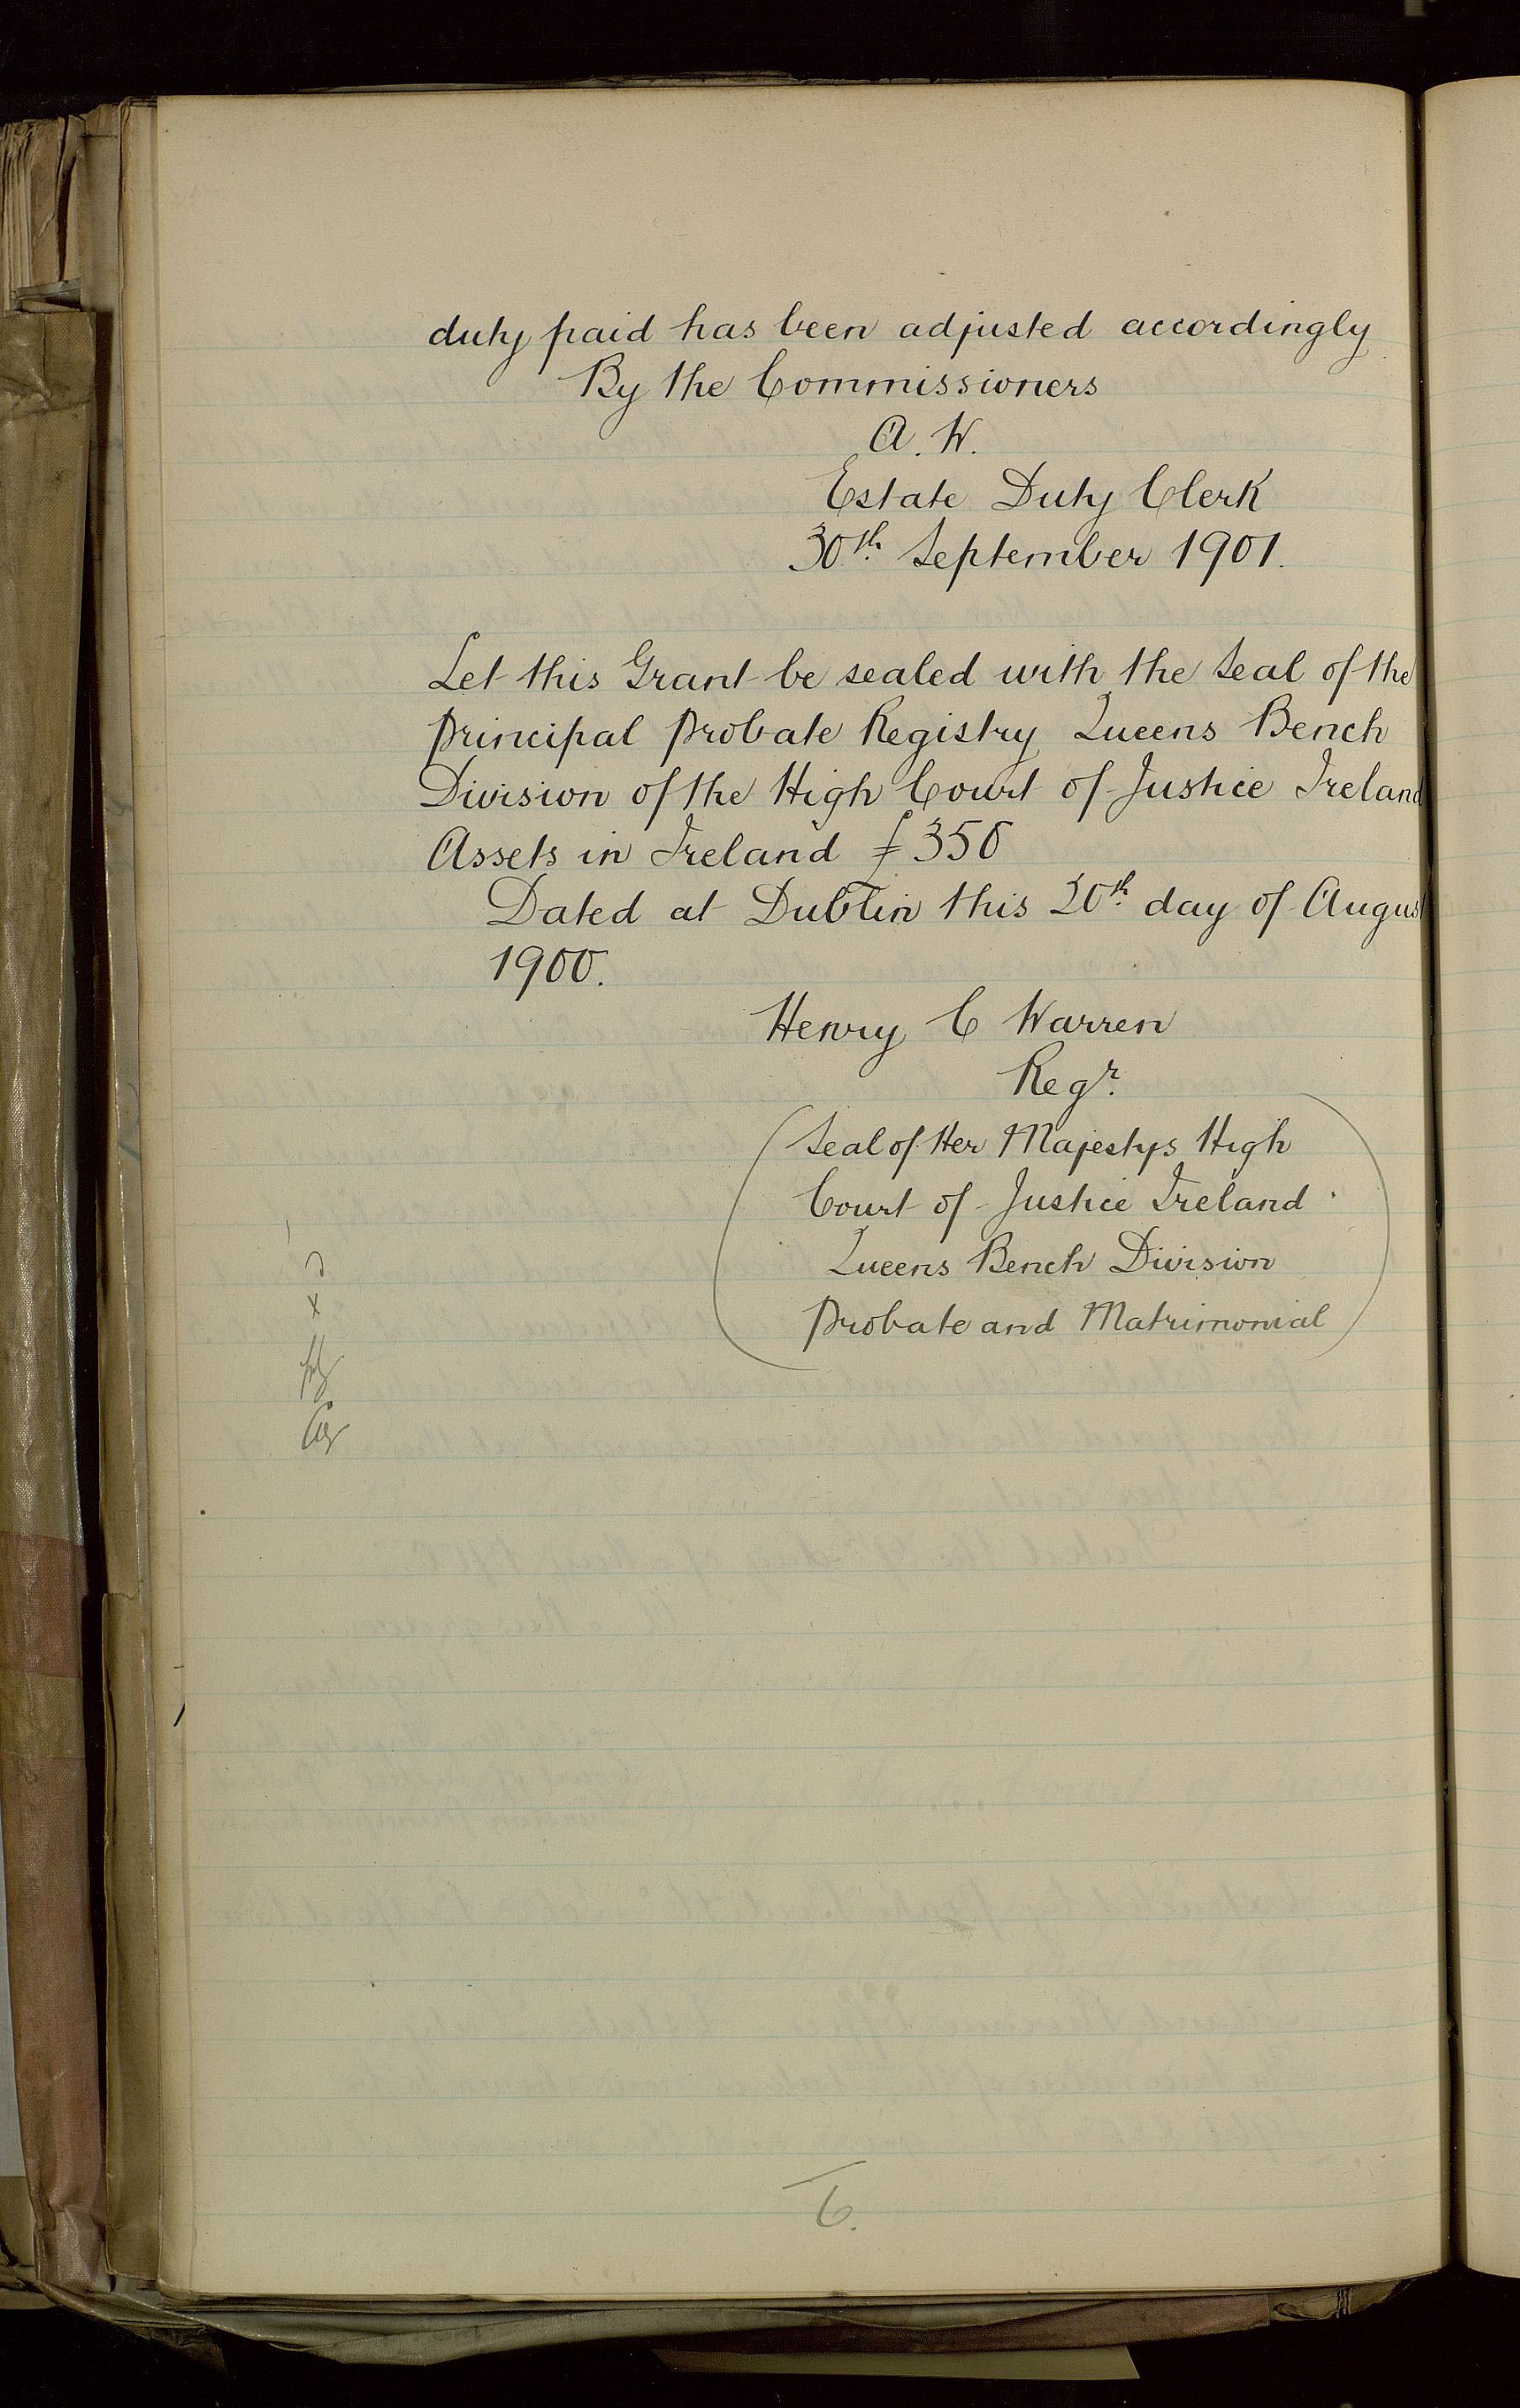 duty paid has been adjusted accordingly
By the Commissioners
A. W.
Estate Duty Clerk
30th September 1901.
Let this Grant be sealed with the Seal of the
Principal Probate Registry Queens Bench
Division of the High Court of Justice Ireland
Assets in Ireland £350
Dated at Dublin this 20th day of Augus
1900.
Henry C Warren
Regr.
Seal of Her Majestys High
Court of Justice Ireland
Queens Bench Division
Probate and Matrimonial
x
6.